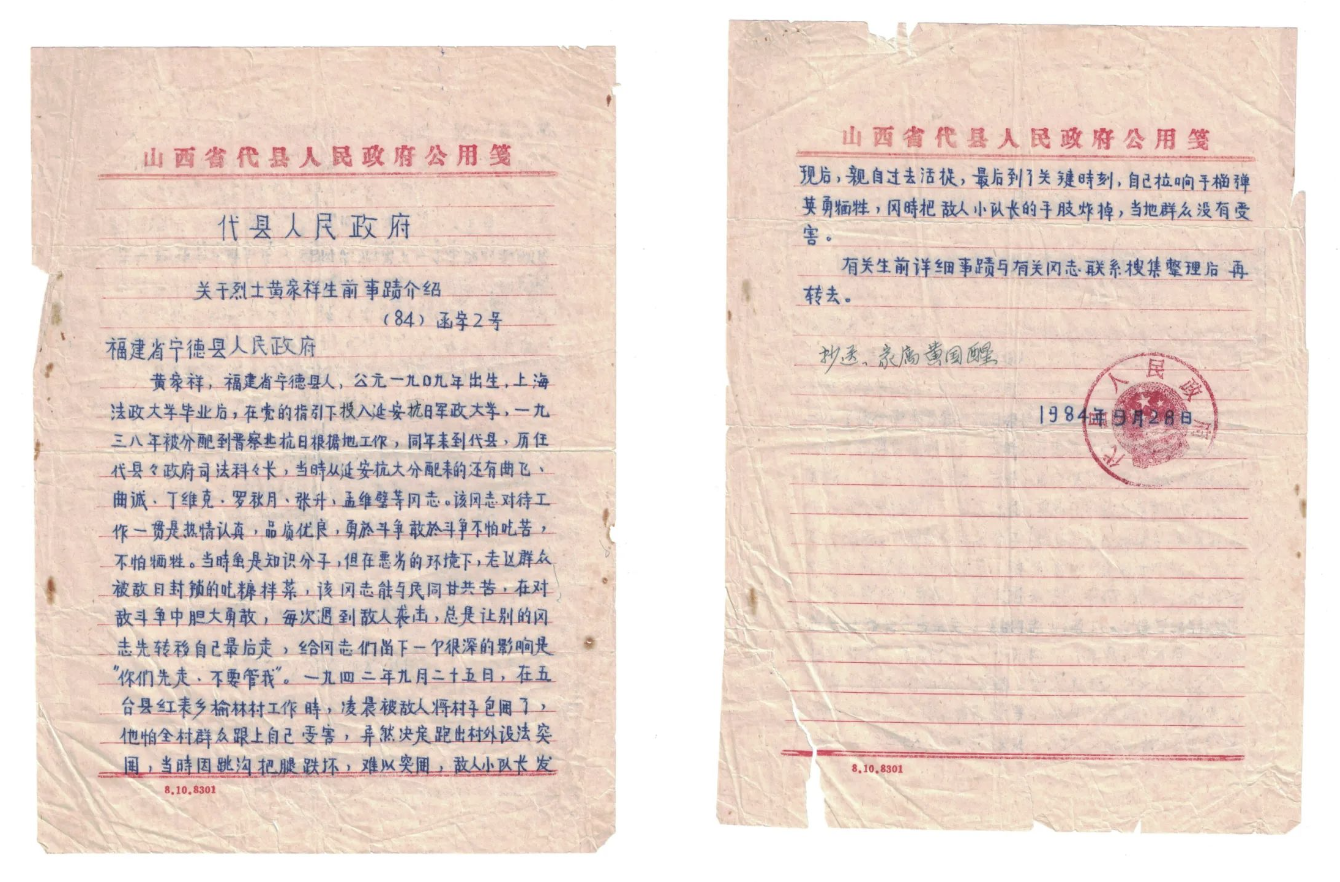 山西省代县人民政府公用笺
代县人民政府
关于烈士黄家祥生前事蹟介绍
（84）函字2号
福建省宁德县人民政府
黄家祥，福建省宁德县人，公元一九0九年出生，上海
法政大学毕业后，在党的指引下投入延安抗日军政大学，一九
三八年被分配到晋察冀抗日根据地工作，同年来到代县，历任
代县々政府司法科々长，当時从延安抗大分配来的还有曲飞、
曲诚、丁维克、罗秋月、张升，孟维璧等同志。该同志对待工
作一贯是热情认真，品质优良，勇於斗争敢於斗争不怕吃苦，
不怕牺牲。当時虽是知识分子，但在恶劣的环境下，老区群众
被敌日封锁的吃糠拌菜，该同志能与民同甘共苦，在对
敌斗争中胆大勇敢，每次遇到敌人袭击，总是让别的同
志先转移自己最后走，给同志们留下一个很深的影响是
"你们先走，不要管我"。一九四二年九月二十五日，在五
台县红表乡榆林村工作時，凌晨被敌人将村子包围了，
他怕全村群众跟上自己受害，毅然决定跑出村外设法突
围，当時因跳沟把腿跌坏，难以突围，敌人小队长发
8.10.8301
山西省代县人民政府公用笺
现后，亲自过去活捉，最后到了关键時刻，自己拉响手榴弹
英勇牺牲，同時把敌人小队长的手肢炸掉，当地群众没有受
害。
有关生前详细事蹟与有关同志联系搜集整理后再
转去。
抄送：家属黄国醒
1984年9月28日
代县人民政府
8.10.8301